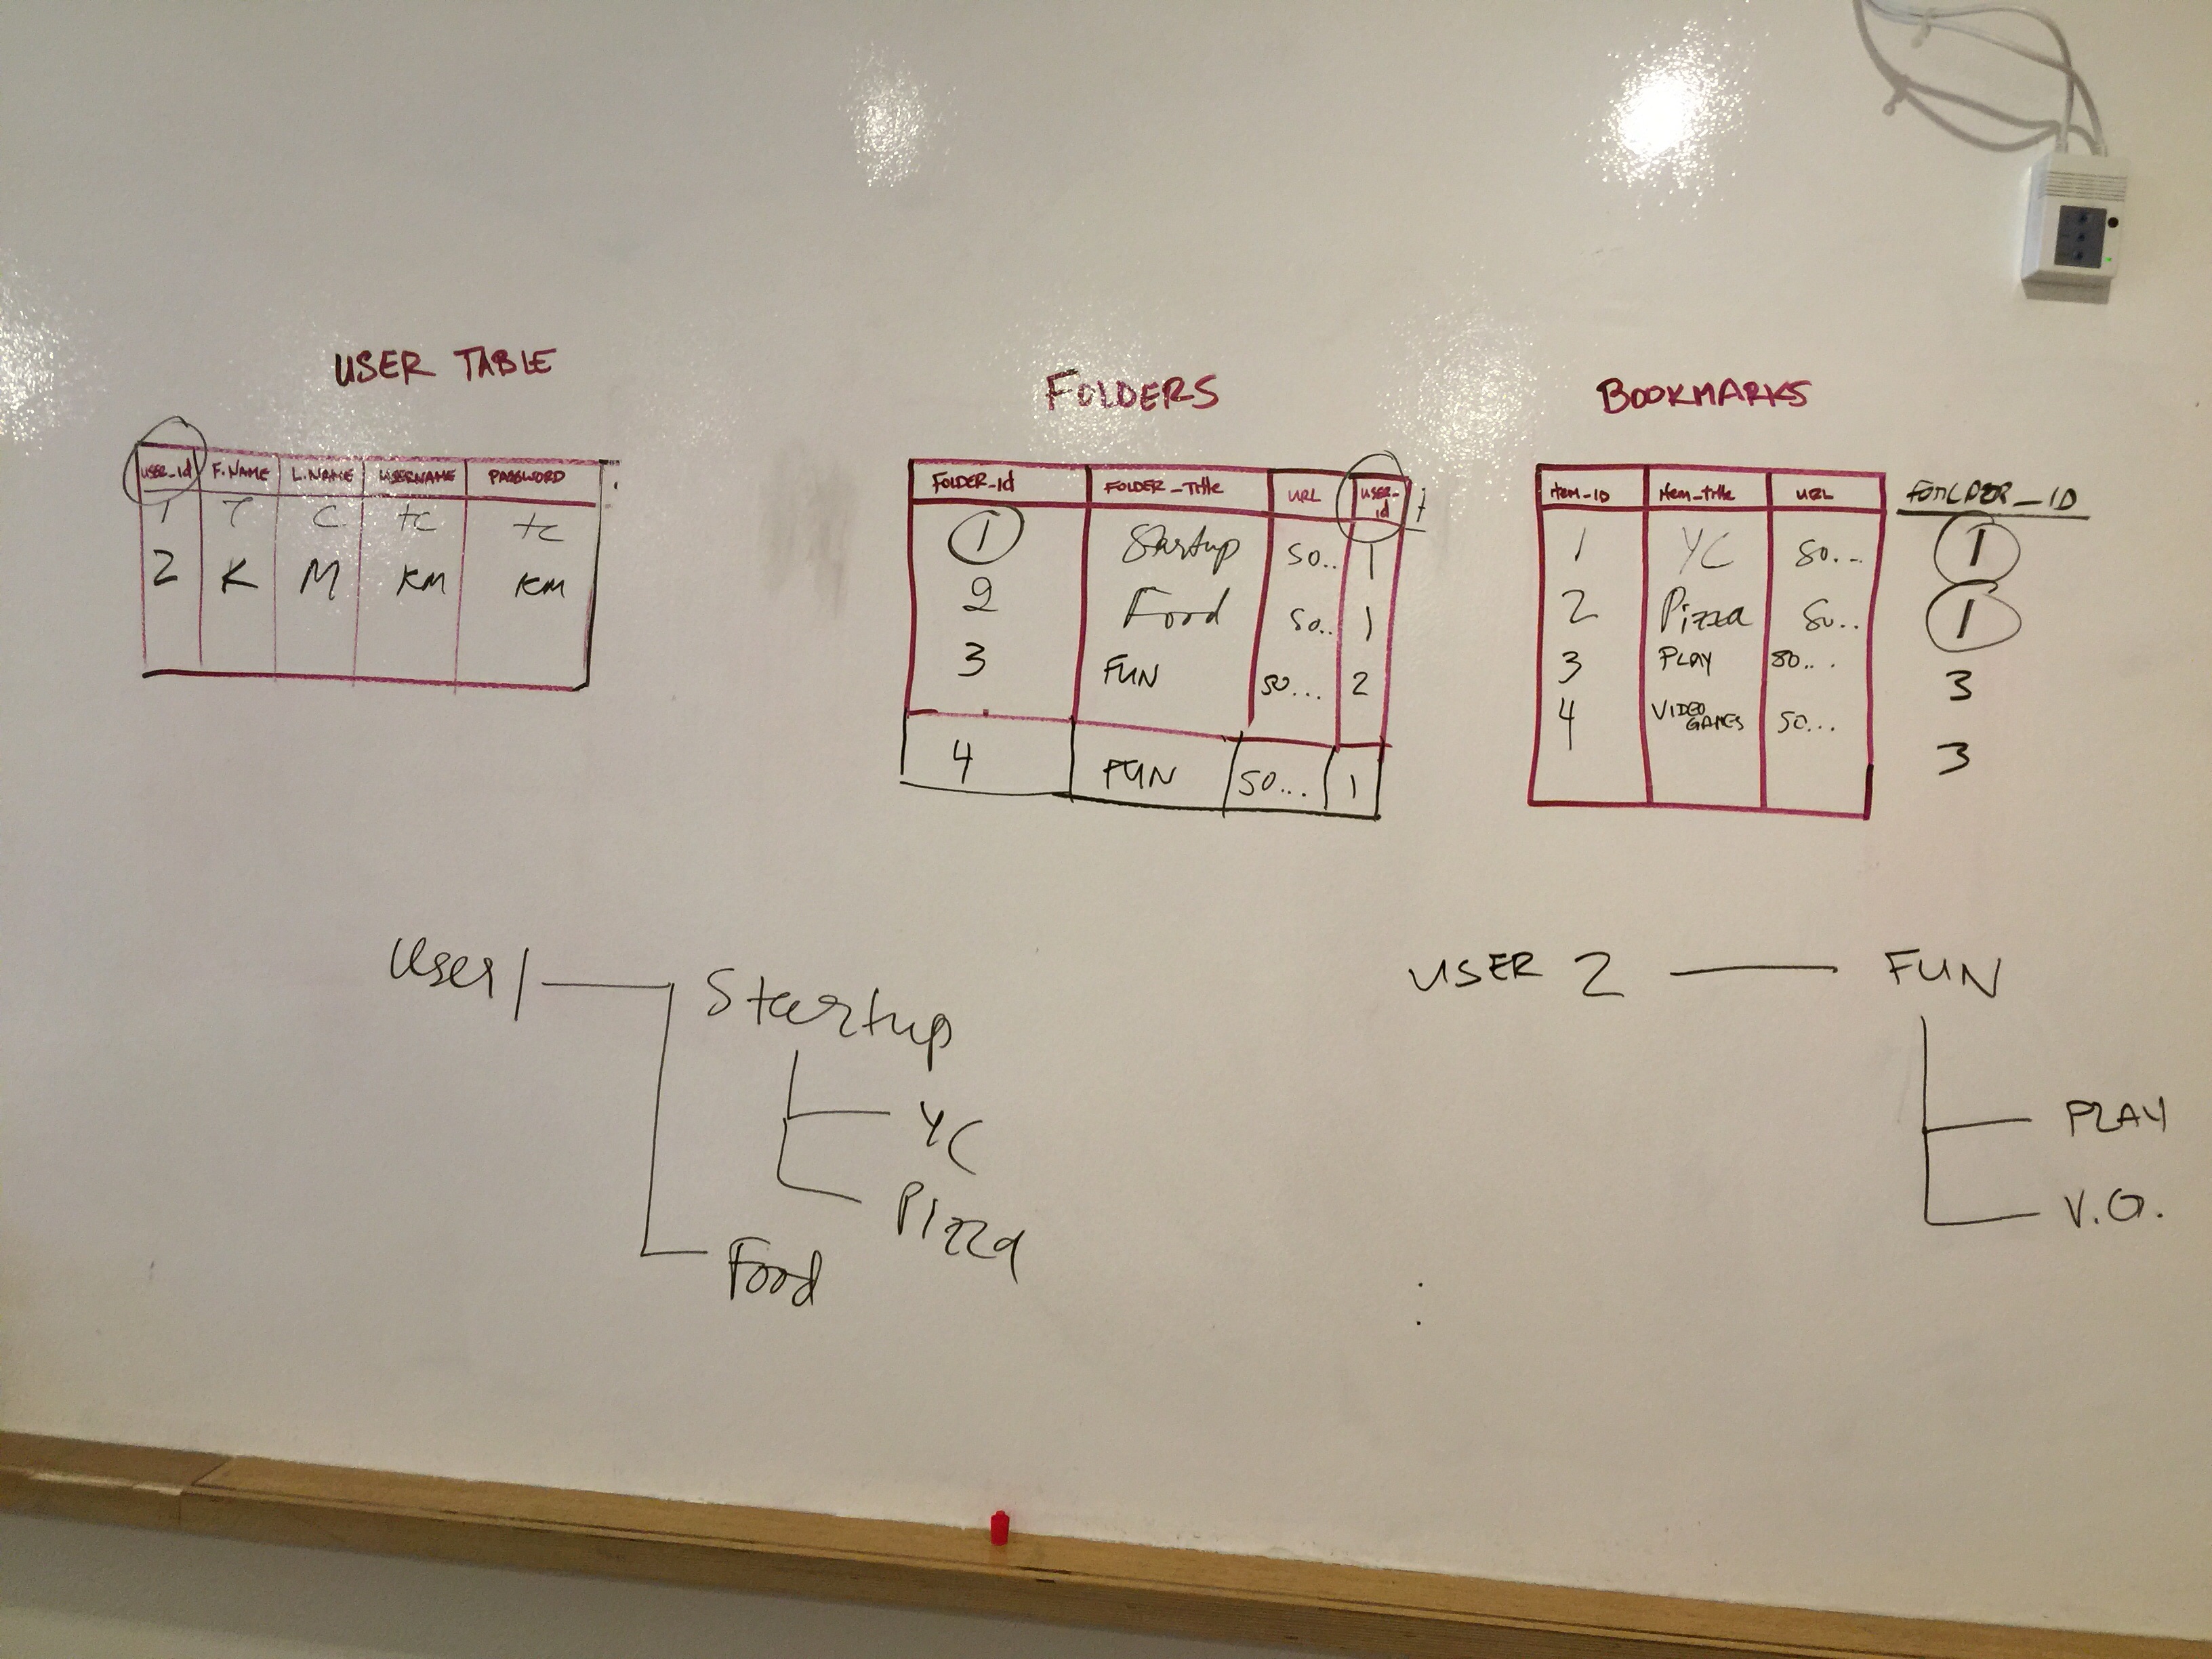 USER TABLE
USER_Id F.NAME L.NAME USERNAME PASSWORD
1 T C tc tc
2 K M KM KM
FOLDERS
FOLDER_Id FOLDER_Title URL USER_id
1 Startup so.. 1
2 Food so.. 1
3 FUN so... 2
4 FUN so... 1
BOOKMARKS
Item_ID Item_title URL FOLDER_ID
1 YC so... 1
2 Pizza so.. 1
3 PLAY so... 3
4 VIDEO GAMES so... 3
User 1
Startup
YC
Pizza
Food
USER 2 FUN
PLAY
V.G.